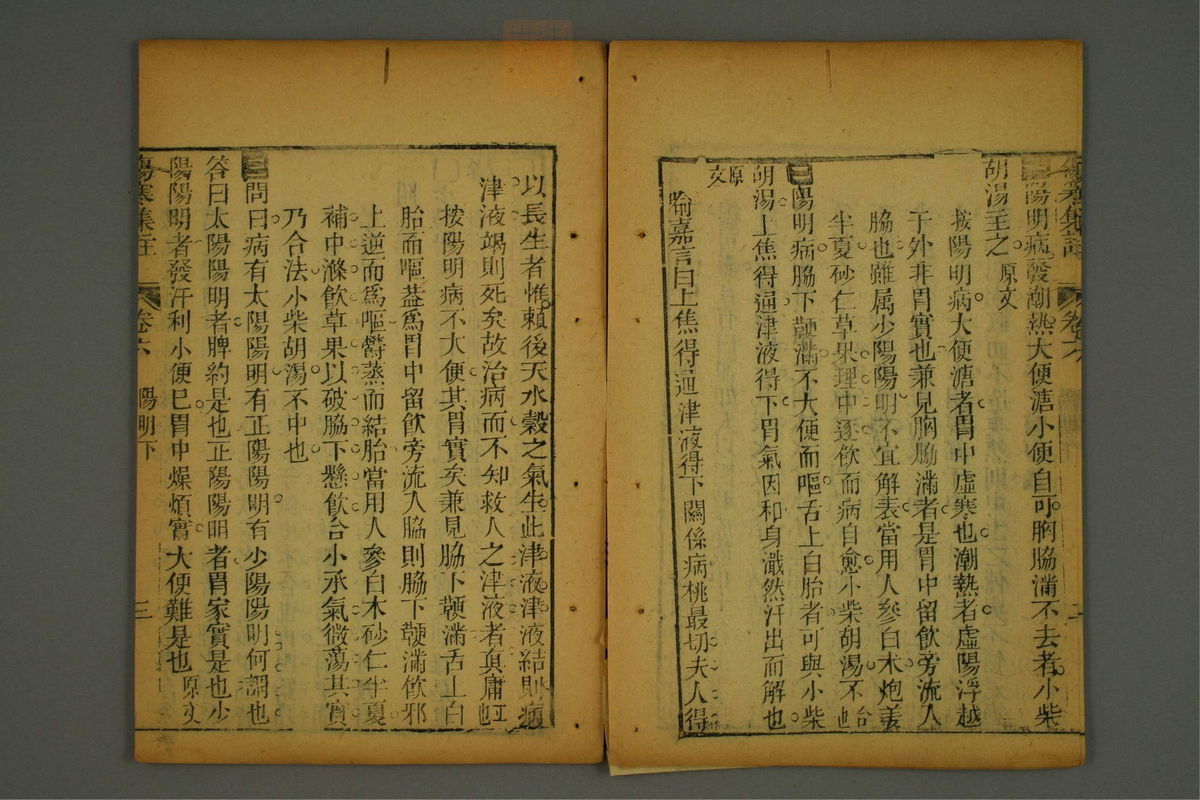 陽明病發潮熱大便溏小便自可胸脇滿不去者小柴
胡湯主之 原文
按陽明病大便溏者胃中虛寒也潮熱者虛陽浮越
于外非胃實也兼見胸脇滿者是胃中留飲旁流入
脇也雖属少陽陽明不宜解表當用人參白朮炮姜
半夏砂仁草果理中逐飲而病自愈小柴胡湯不
陽明病脇下鞕滿不大便而嘔舌上白胎者可與小柴
胡湯上焦得通津液得下胃氣因和身濈然汗出而解也
原文
喻嘉言曰上焦得通津液得下關係病桃最切夫人得
以長生者惟賴後天水穀之氣生此津液津液結則病
津液竭則死矣故治病而不知救人之津液者真庸工也
按陽明病不大便其胃實矣兼見脇下鞕滿舌上白
胎而嘔葢爲胃中留飲旁流入脇則脇下鞕滿飲邪
上逆而爲嘔欝蒸而結胎當用人參白朮砂仁半夏
補中滌飲草果以破脇下懸飲合小承氣微蕩其實
乃合法小柴胡湯不中也
問曰病有太陽陽明有正陽陽明有少陽陽明何謂也
答曰太陽陽明者脾約是也正陽陽明者胃家實是也少
陽陽明者發汗利小便已胃中燥煩實大便難是也 原文
傷寒集註 卷六 陽明下 三